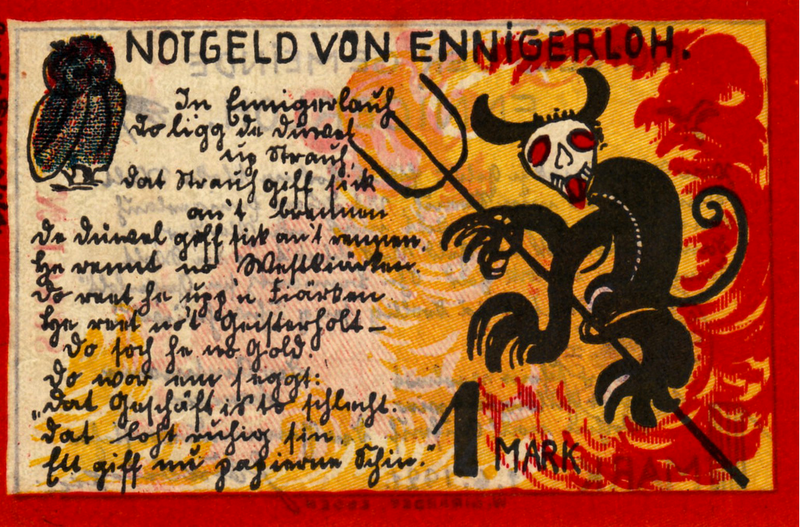 NOTGELD VON ENNIGERLOH.
In Ennigerlauh
do ligg de Düwel
up Strauh,
dat Strauh giff sick
an't brennen
de Düwel giff sick an't rennen.
He rennt no Westkiärken.
Do reet he upp'n Fiärken
He reet no't Geisterholt –
Do soch he no Gold.
Do wor em seggt:
„Dat Geschäft is to schlecht.
dat loht ruhig sin
Ett giff nu papierne Schin."
1 MARK